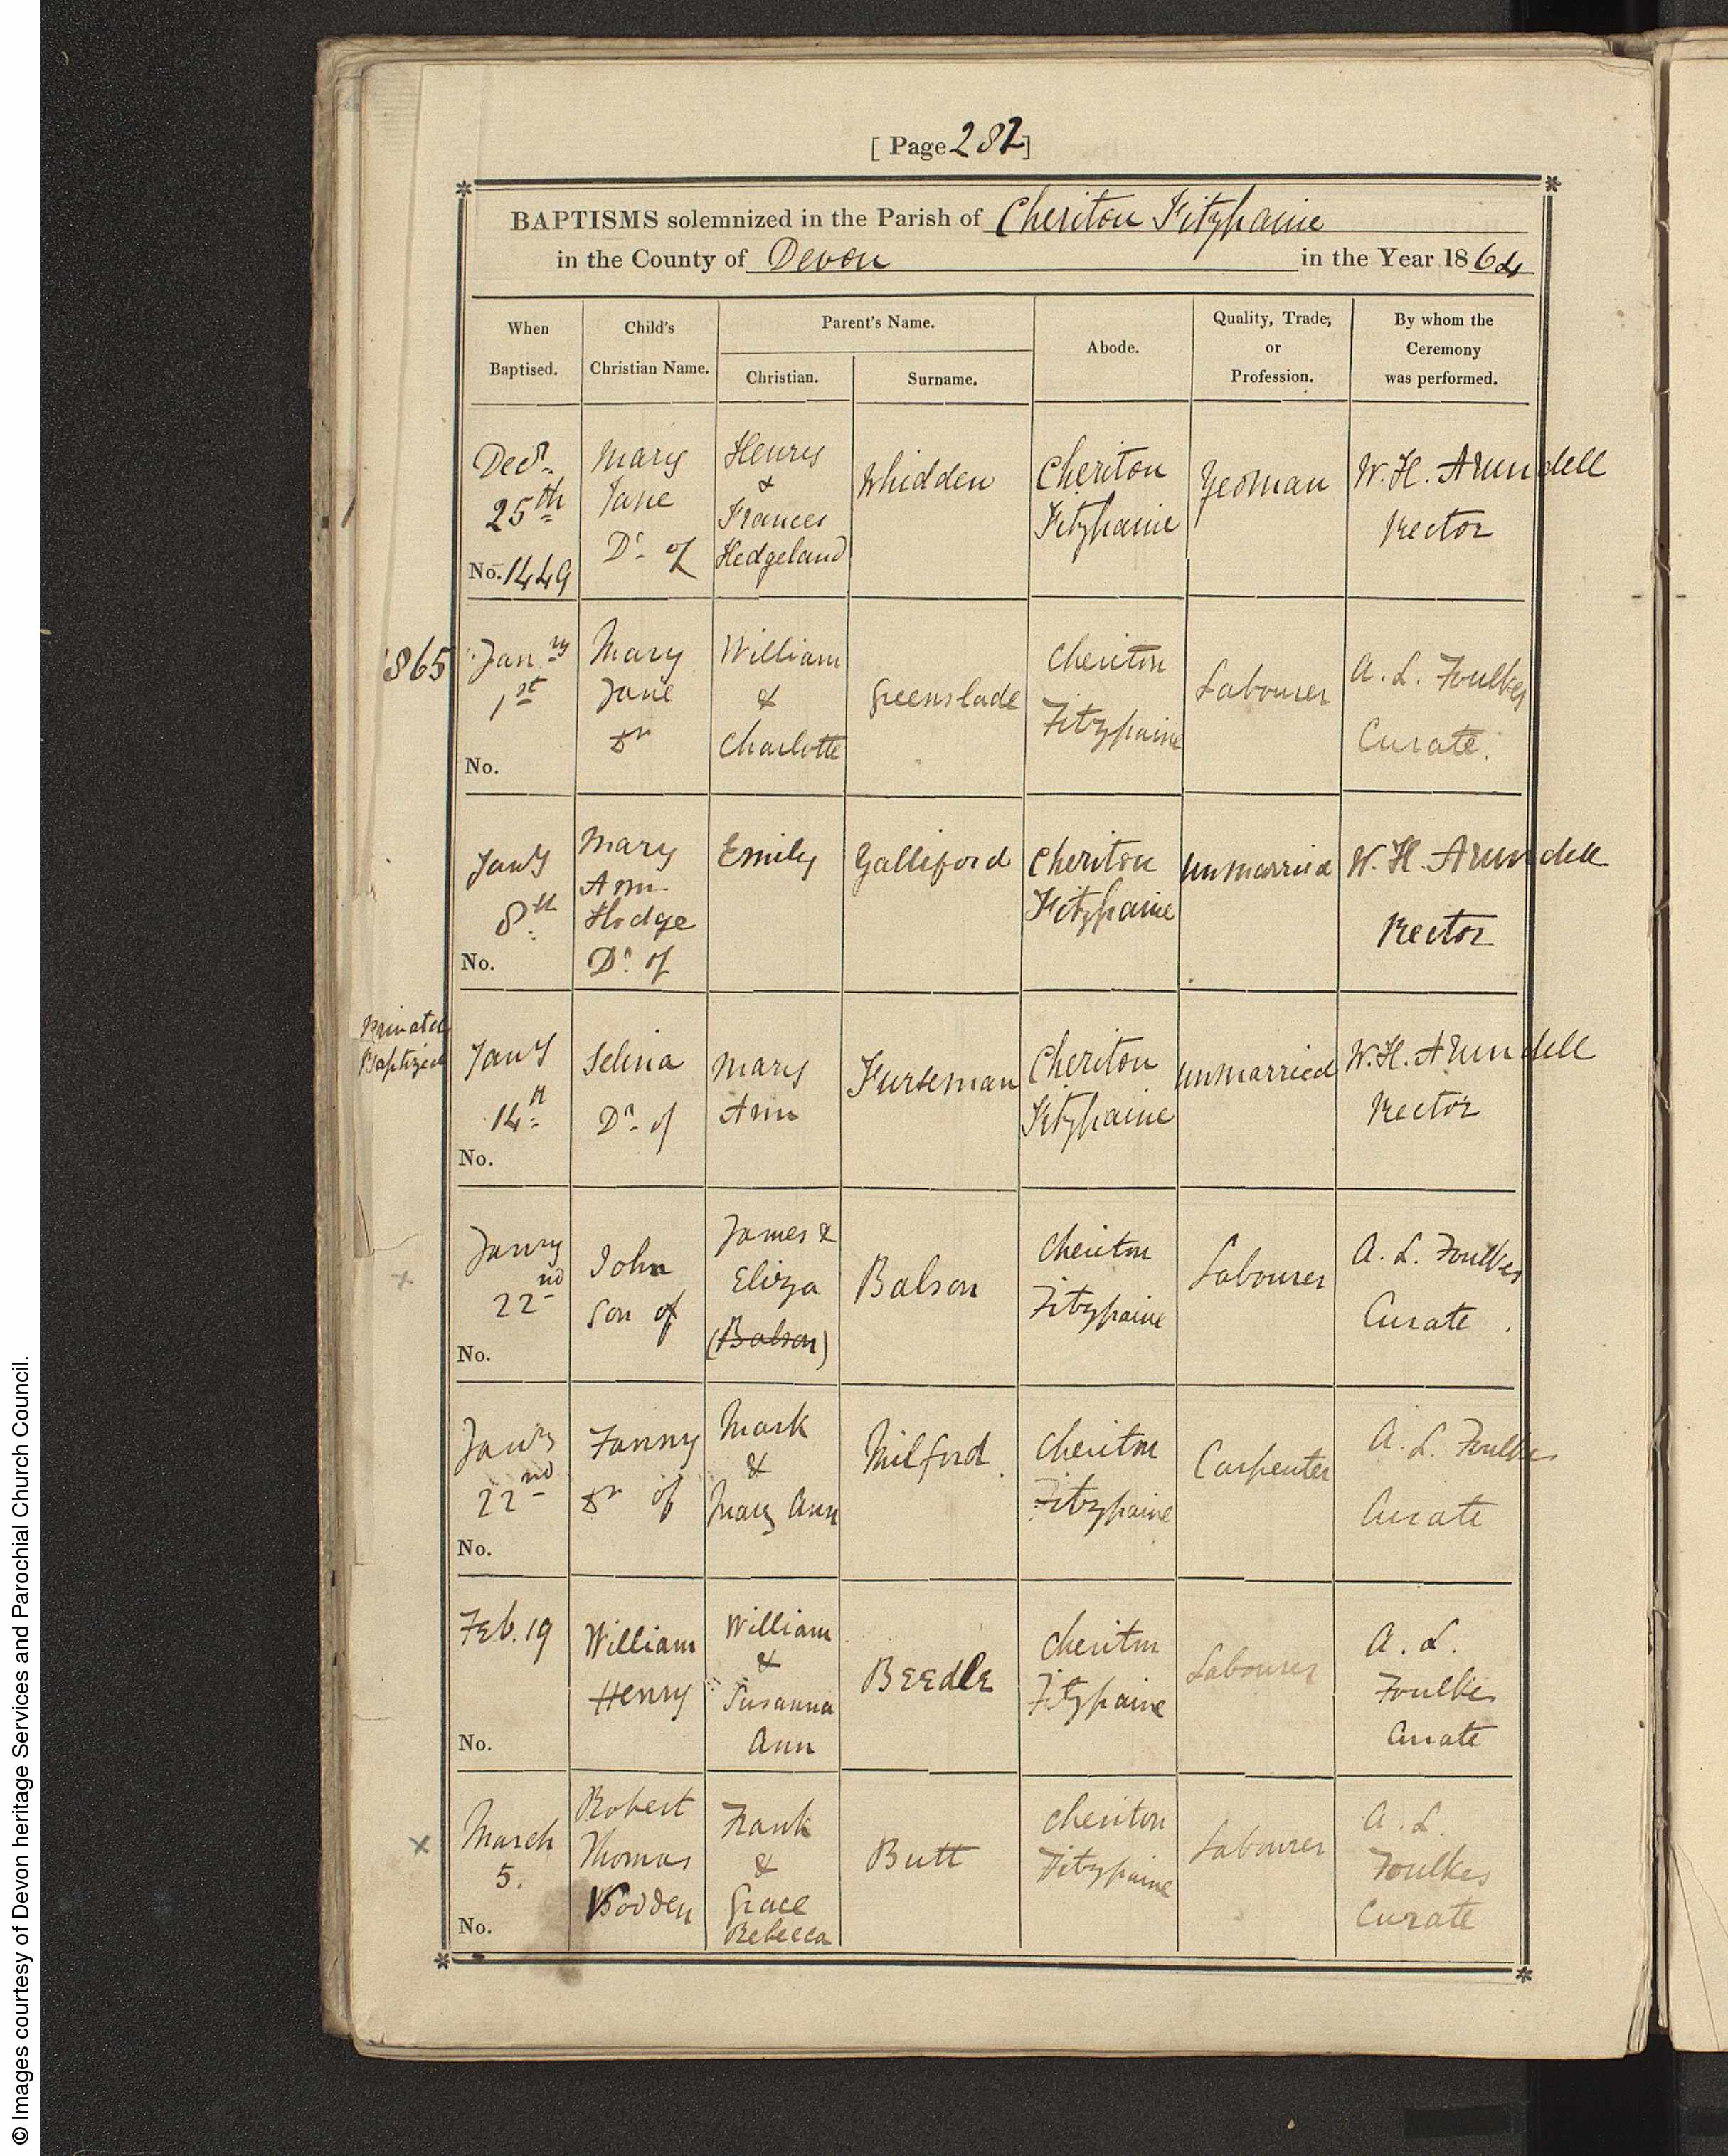 [ Page 282 ]
BAPTISMS solemnized in the Parish of Cheriton Fitzpaine
in the County of Devon in the Year 1864
When Baptised.
Child's Christian Name.
Parent's Name.
Christian.
Surname.
Abode.
Quality, Trade, or Profession.
By whom the Ceremony was performed.
Decr.
25th
No. 1449
Mary
Jane
Dr. of
Henry
&
Frances
Hedgeland
Whidden
Cheriton
Fitzpaine
Yeoman
W. H. Arundell
Rector
1865
Janry
1st
No.
Mary
Jane
Dr
William
&
Charlotte
Greenslade
Cheriton
Fitzpaine
Labourer
A. L. Foulkes
Curate.
Jany
8th
No.
Mary
Ann
Hodge
Dr. of
Emily
Galliford
Cheriton
Fitzpaine
Unmarried
W. H. Arundell
Rector
Privately
Baptized
Jany
14th
No.
Selina
Dr. of
Mary
Ann
Furseman
Cheriton
Fitzpaine
Unmarried
W. H. Arundell
Rector
Janry
22nd
No.
John
Son of
James &
Eliza
(Balson)
Balson
Cheriton
Fitzpaine
Labourer
A. L. Foulkes
Curate.
Janry
22nd
No.
Fanny
Dr of
Mark
&
Mary Ann
Milford
Cheriton
Fitzpaine
Carpenter
A. L. Foulkes
Curate
Feb. 19
No.
William
Henry
William
&
Susanna
Ann
Beedle
Cheriton
Fitzpaine
Labourer
A. L.
Foulkes
Curate
March
5.
No.
Robert
Thomas
Frank
&
Grace
Rebecca
Butt
Cheriton
Fitzpaine
Labourer
A. L.
Foulkes
Curate
© Images courtesy of Devon heritage Services and Parochial Church Council.